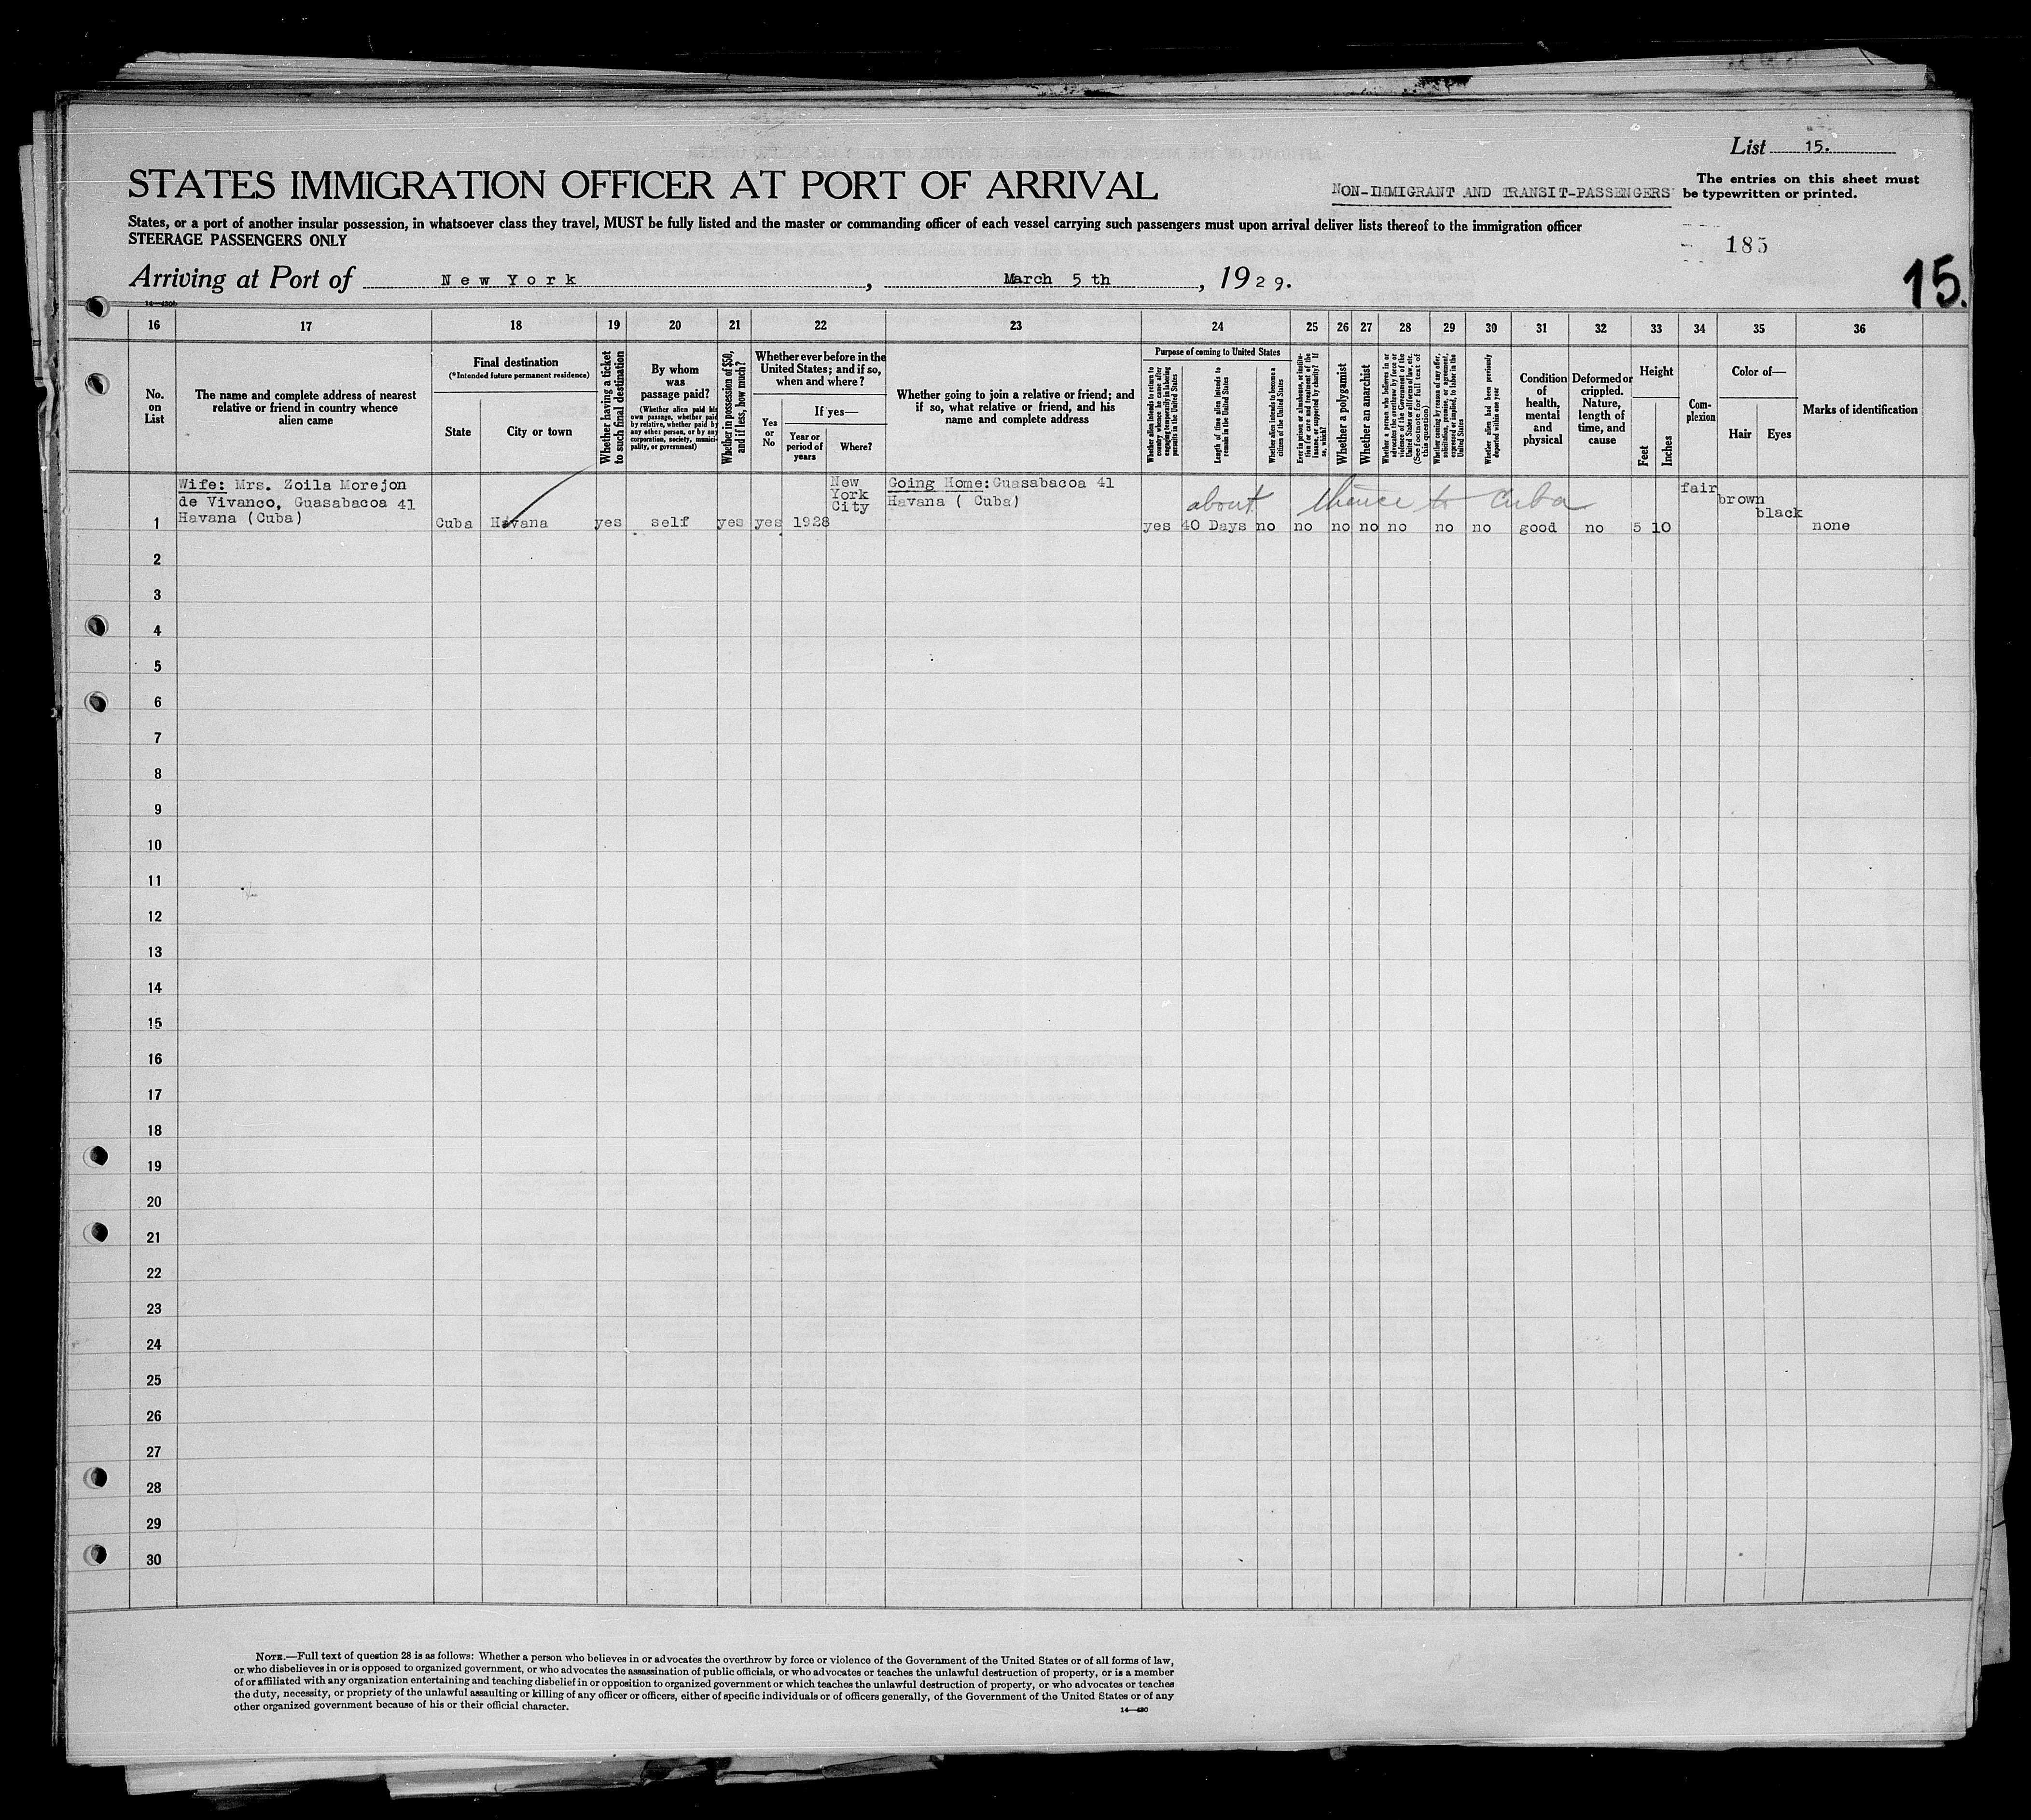 List 15.
STATES IMMIGRATION OFFICER AT PORT OF ARRIVAL
NON-IMMIGRANT AND TRANSIT-PASSENGERS
The entries on this sheet must
be typewritten or printed.
States, or a port of another insular possession, in whatsoever class they travel, MUST be fully listed and the master or commanding officer of each vessel carrying such passengers must upon arrival deliver lists thereof to the immigration officer
STEERAGE PASSENGERS ONLY
185
15.
Arriving at Port of New York, March 5 th, 1929.
14—430b
16 17 18 19 20 21 22 23 24 25 26 27 28 29 30 31 32 33 34 35 36
No.
on
List
The name and complete address of nearest
relative or friend in country whence
alien came
Final destination
(*Intended future permanent residence)
State
City or town
Whether having a ticket
to such final destination
By whom
was
passage paid?
(Whether alien paid his
own passage, whether paid
by relative, whether paid by
any other person, or by any
corporation, society, munici-
pality, or government)
Whether in possession of $50,
and if less, how much?
Whether ever before in the
United States; and if so,
when and where?
Yes
or
No
If yes—
Year or
period of
years
Where?
Whether going to join a relative or friend; and
if so, what relative or friend, and his
name and complete address
Purpose of coming to United States
Whether alien intends to return to
country whence he came after
engaging temporarily in laboring
pursuits in the United States
Length of time alien intends to
remain in the United States
Whether alien intends to become a
citizen of the United States
Ever in prison or almshouse, or institu-
tion for care and treatment of the
insane, or supported by charity? If
so, which?
Whether a polygamist
Whether an anarchist
Whether a person who believes in or
advocates the overthrow by force or
violence of the Government of the
United States or all forms of law, etc.
(See footnote for full text of
this question)
Whether coming by reason of any offer,
solicitation, promise, or agreement,
expressed or implied, to labor in the
United States
Whether alien had been previously
deported within one year
Condition
of
health,
mental
and
physical
Deformed or
crippled.
Nature,
length of
time, and
cause
Height
Feet
Inches
Com-
plexion
Color of—
Hair
Eyes
Marks of identification
Wife: Mrs. Zoila Morejon
de Vivanco, Guasabacoa 41
Havana (Cuba)
1 Cuba Havana yes self yes yes 1928
New
York
City
Going Home: Guasabacoa 41
Havana ( Cuba)
about thence to Cuba
yes 40 Days no no no no no no no good no 5 10
fair
brown
black
none
2
3
4
5
6
7
8
9
10
11
12
13
14
15
16
17
18
19
20
21
22
23
24
25
26
27
28
29
30
NOTE.—Full text of question 28 is as follows: Whether a person who believes in or advocates the overthrow by force or violence of the Government of the United States or of all forms of law,
or who disbelieves in or is opposed to organized government, or who advocates the assassination of public officials, or who advocates or teaches the unlawful destruction of property, or is a member
of or affiliated with any organization entertaining and teaching disbelief in or opposition to organized government or which teaches the unlawful destruction of property, or who advocates or teaches
the duty, necessity, or propriety of the unlawful assaulting or killing of any officer or officers, either of specific individuals or of officers generally, of the Government of the United States or of any
other organized government because of his or their official character.
14—430